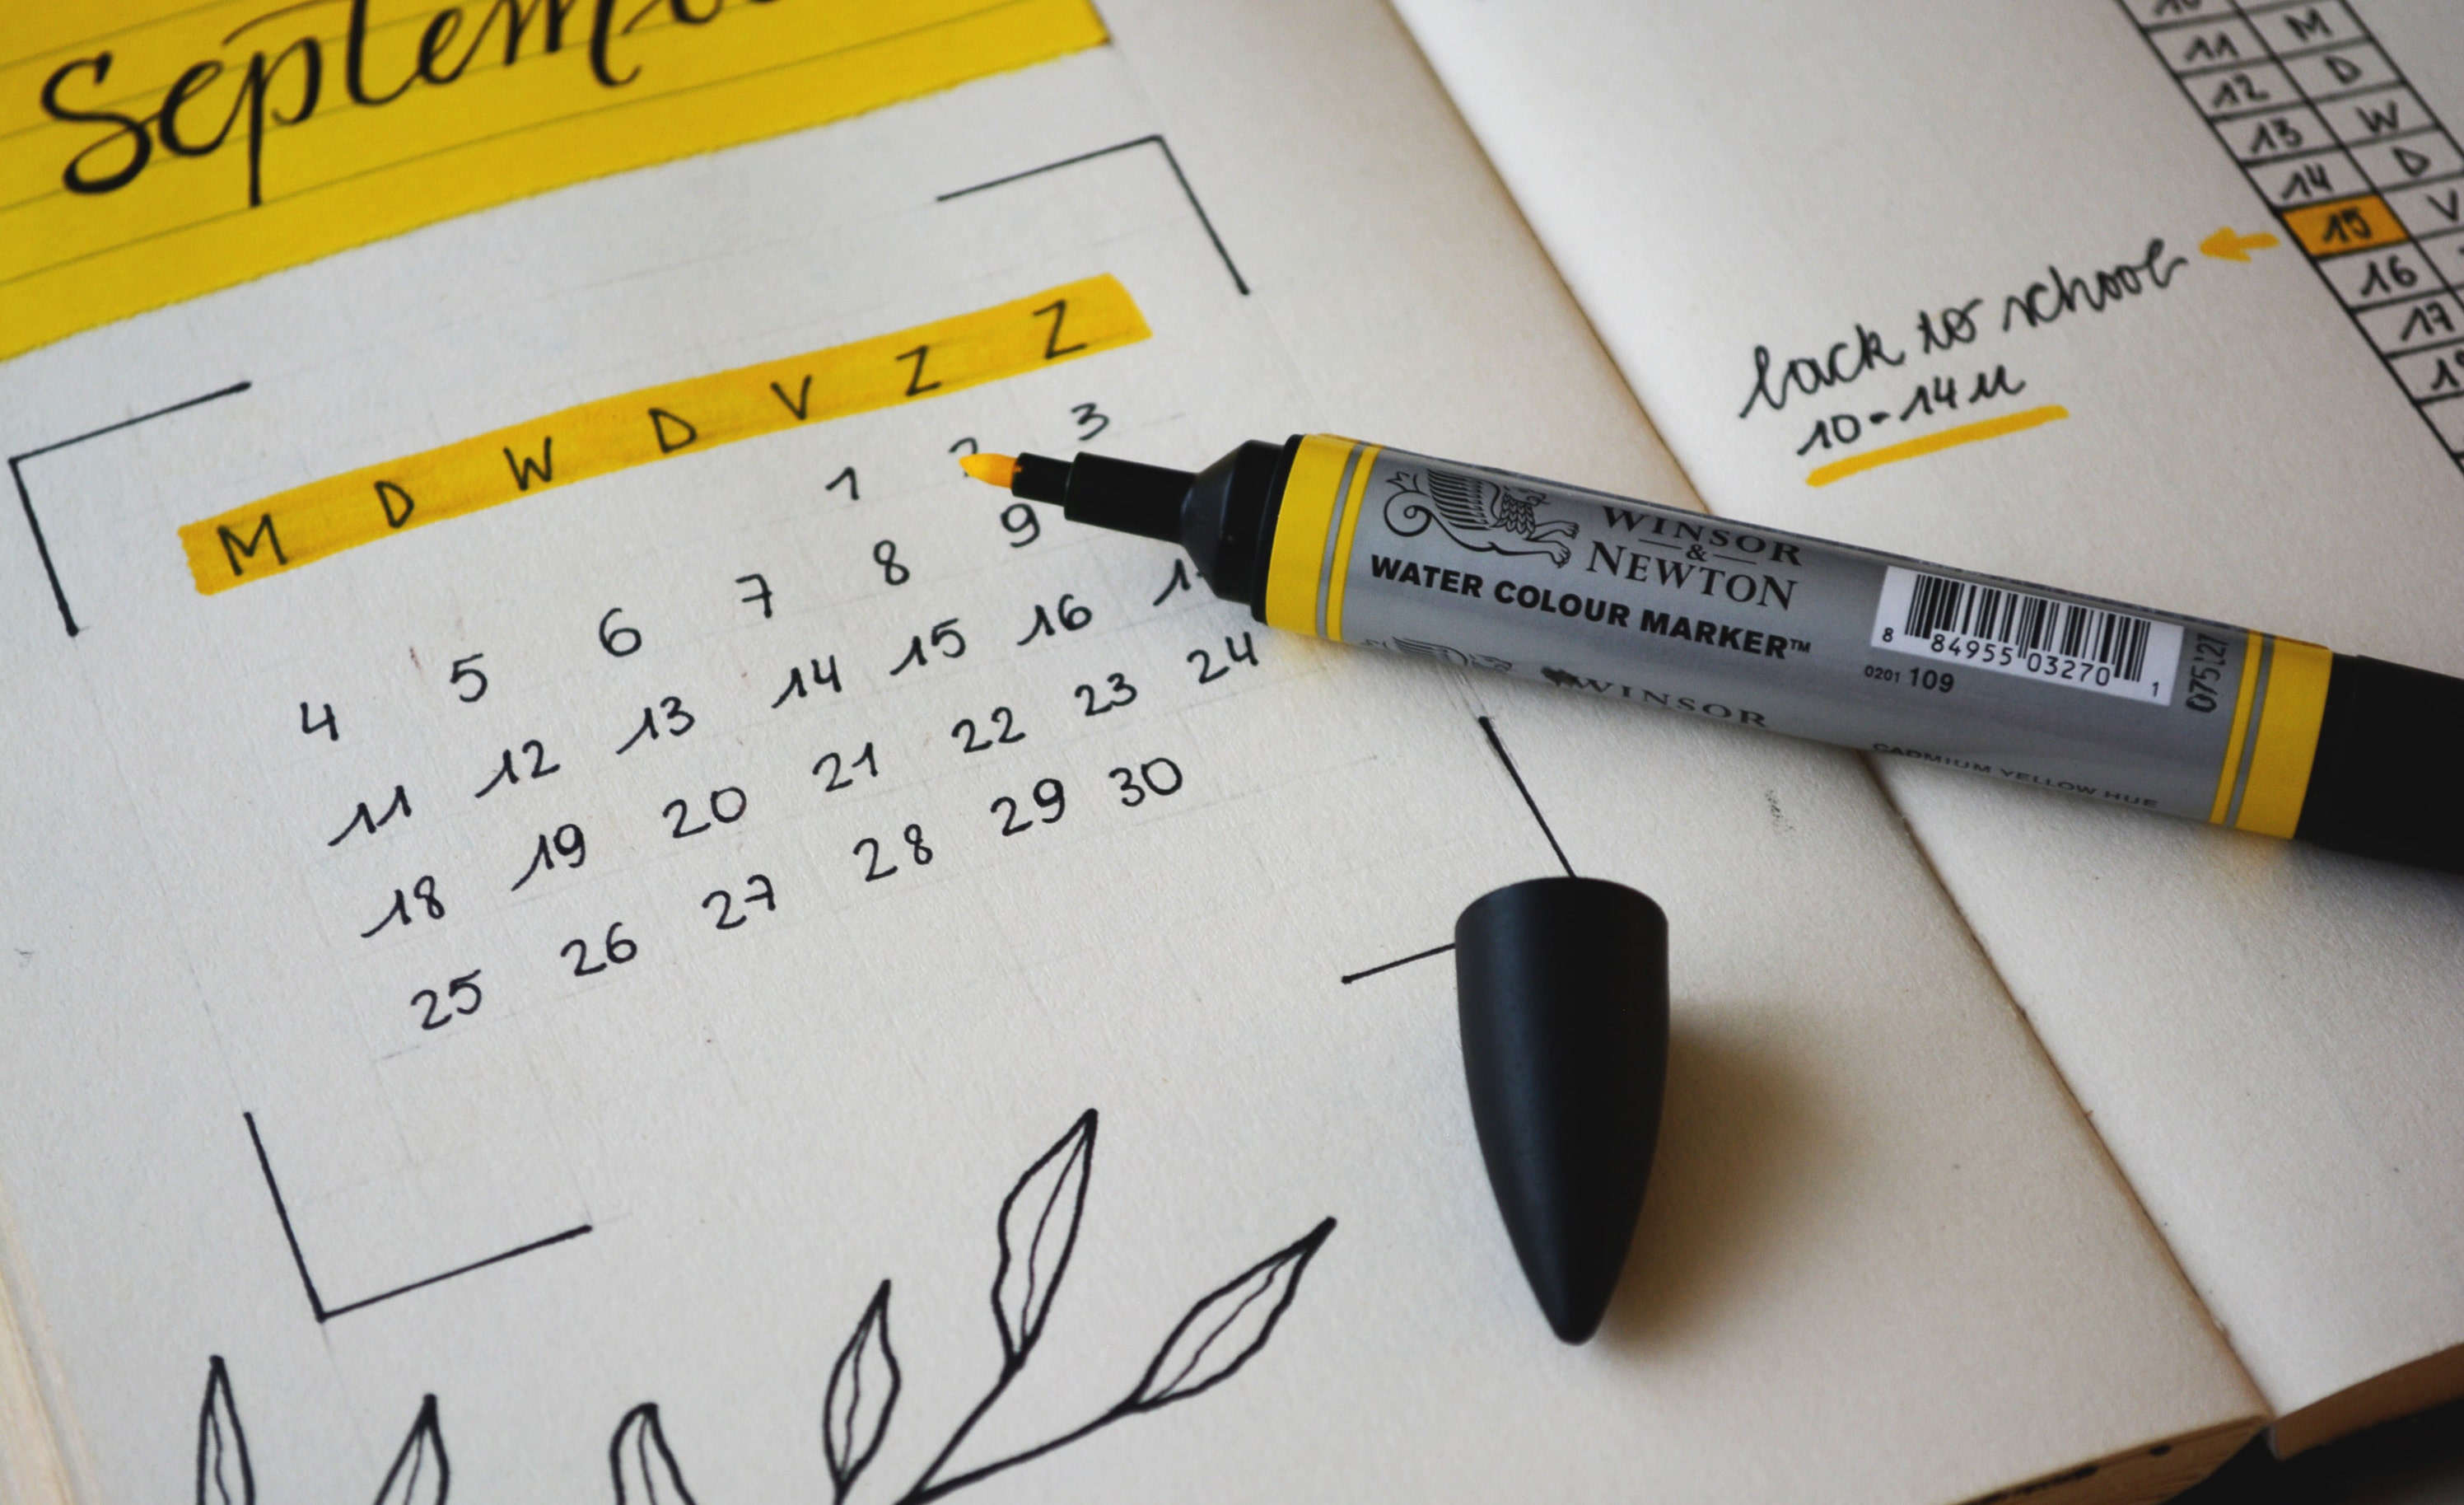 M D W D V Z Z
1 2 3
4 5 6 7 8 9
11 12 13 14 15 16
18 19 20 21 22 23 24
25 26 27 28 29 30
11 M
12 D
13 W
14 D
15 V
16
17
back to school
10-14u
WINSOR
&
NEWTON
WATER COLOUR MARKER™
8 84955 03270 1
0201 109
075127
WINSOR
CADMIUM YELLOW HUE